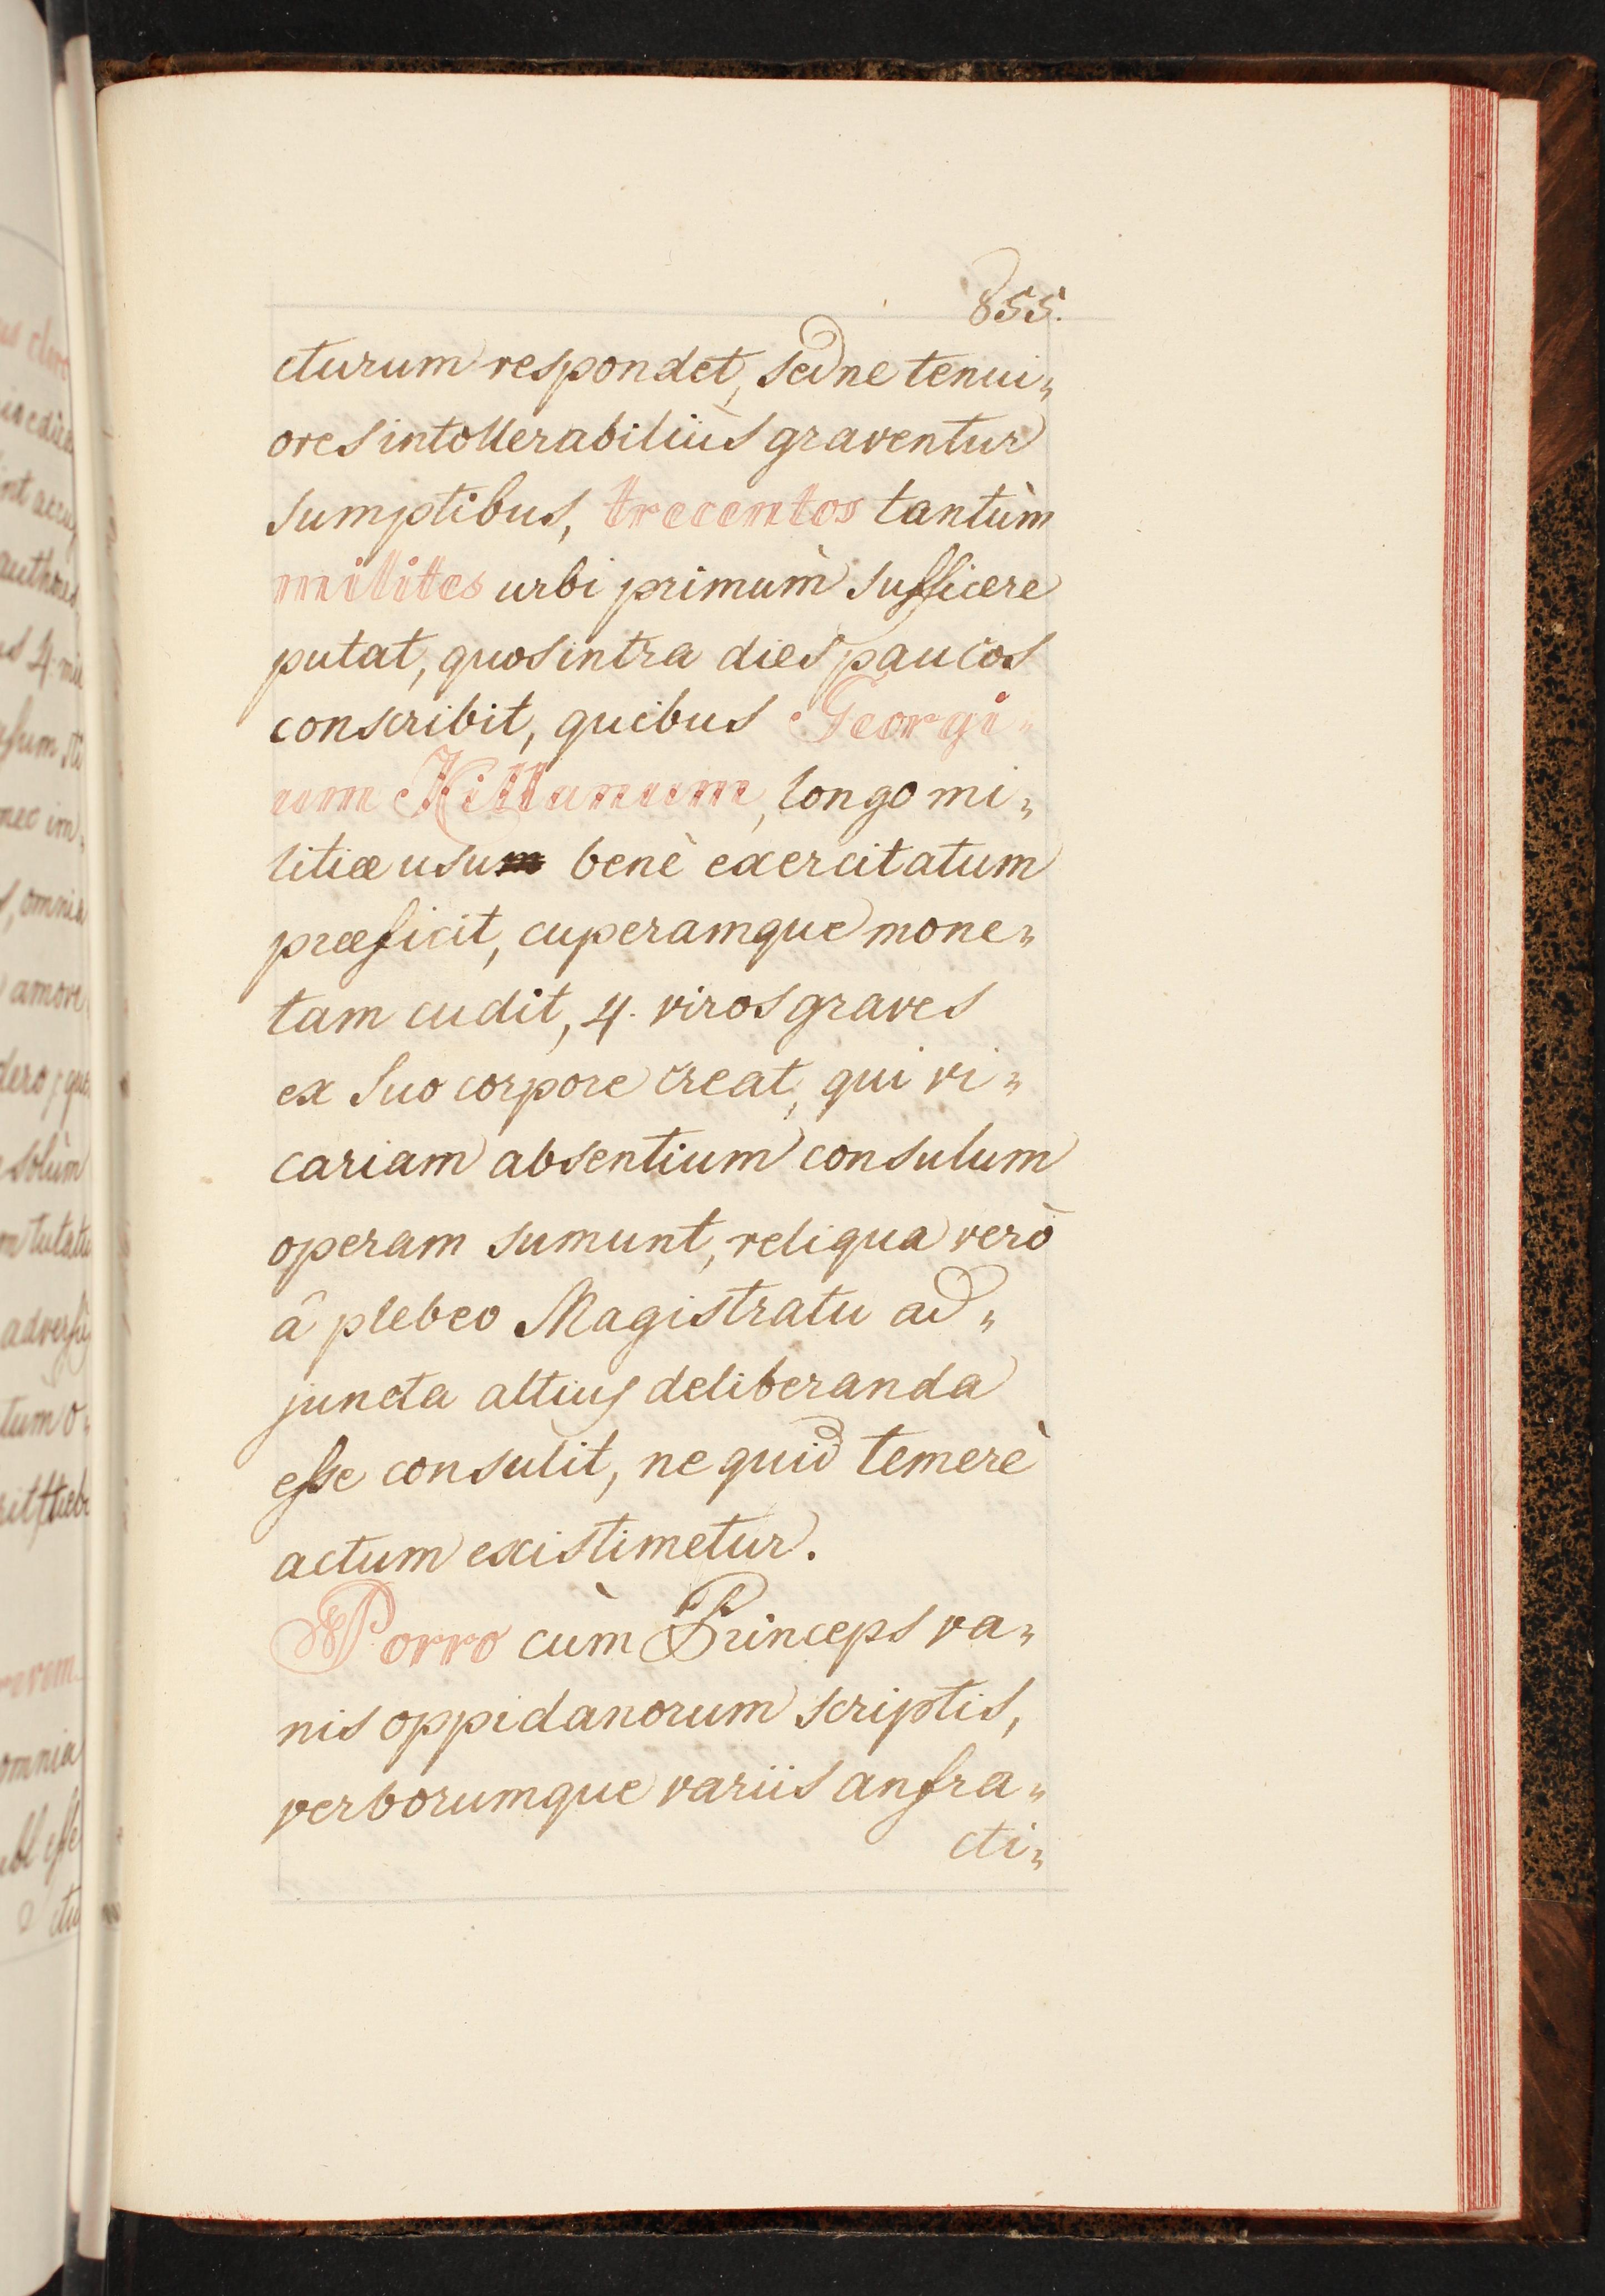 855.
cturum respondet, sed ne tenui„
ores intollerabiliùs graventur
sumptibus, trecentos tantùm
milites urbi primùm sufficere
putat, quos intra dies paucos
conscribit, quibus Georgi„
um Killanum, longo mi„
litiæ usum benè exercitatum
præficit, cuperamque mone„
tam cudit, 4. viros graves
ex suo corpore creat, qui vi„
cariam absentium consulum
operam sumunt, reliqua verò
â plebeo Magistratu ad„
juncta altius deliberanda
esse consulit, ne quid temerè
actum existimetur.
Porro cùm Princeps va„
nis oppidanorum scriptis,
verborumque variis anfra„
cti„